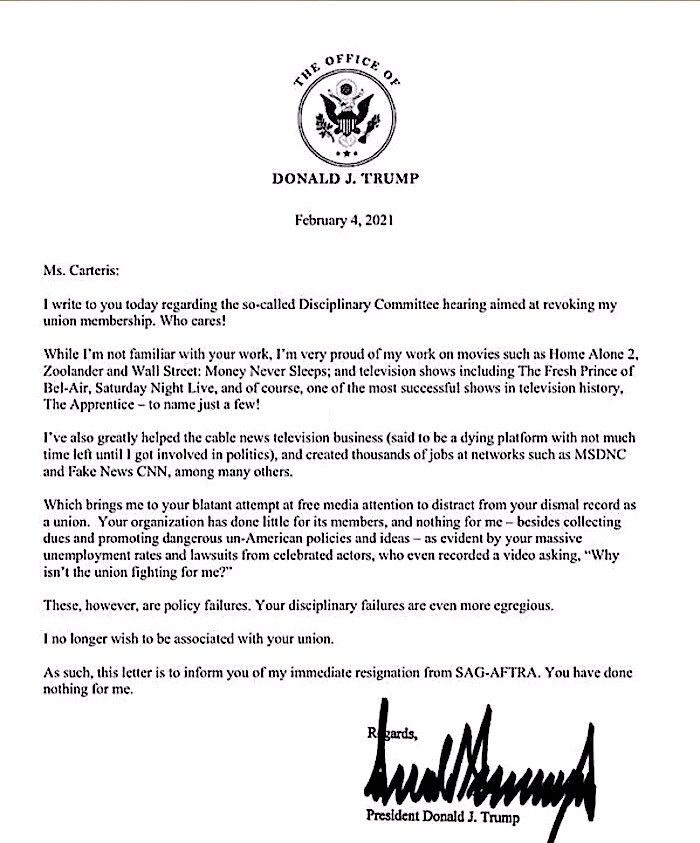 THE OFFICE OF
DONALD J. TRUMP
February 4, 2021
Ms. Carteris:
I write to you today regarding the so-called Disciplinary Committee hearing aimed at revoking my
union membership. Who cares!
While I'm not familiar with your work, I'm very proud of my work on movies such as Home Alone 2,
Zoolander and Wall Street: Money Never Sleeps; and television shows including The Fresh Prince of
Bel-Air, Saturday Night Live, and of course, one of the most successful shows in television history,
The Apprentice – to name just a few!
I've also greatly helped the cable news television business (said to be a dying platform with not much
time left until I got involved in politics), and created thousands of jobs at networks such as MSDNC
and Fake News CNN, among many others.
Which brings me to your blatant attempt at free media attention to distract from your dismal record as
a union. Your organization has done little for its members, and nothing for me – besides collecting
dues and promoting dangerous un-American policies and ideas – as evident by your massive
unemployment rates and lawsuits from celebrated actors, who even recorded a video asking, “Why
isn't the union fighting for me?”
These, however, are policy failures. Your disciplinary failures are even more egregious.
I no longer wish to be associated with your union.
As such, this letter is to inform you of my immediate resignation from SAG-AFTRA. You have done
nothing for me.
Regards,
President Donald J. Trump